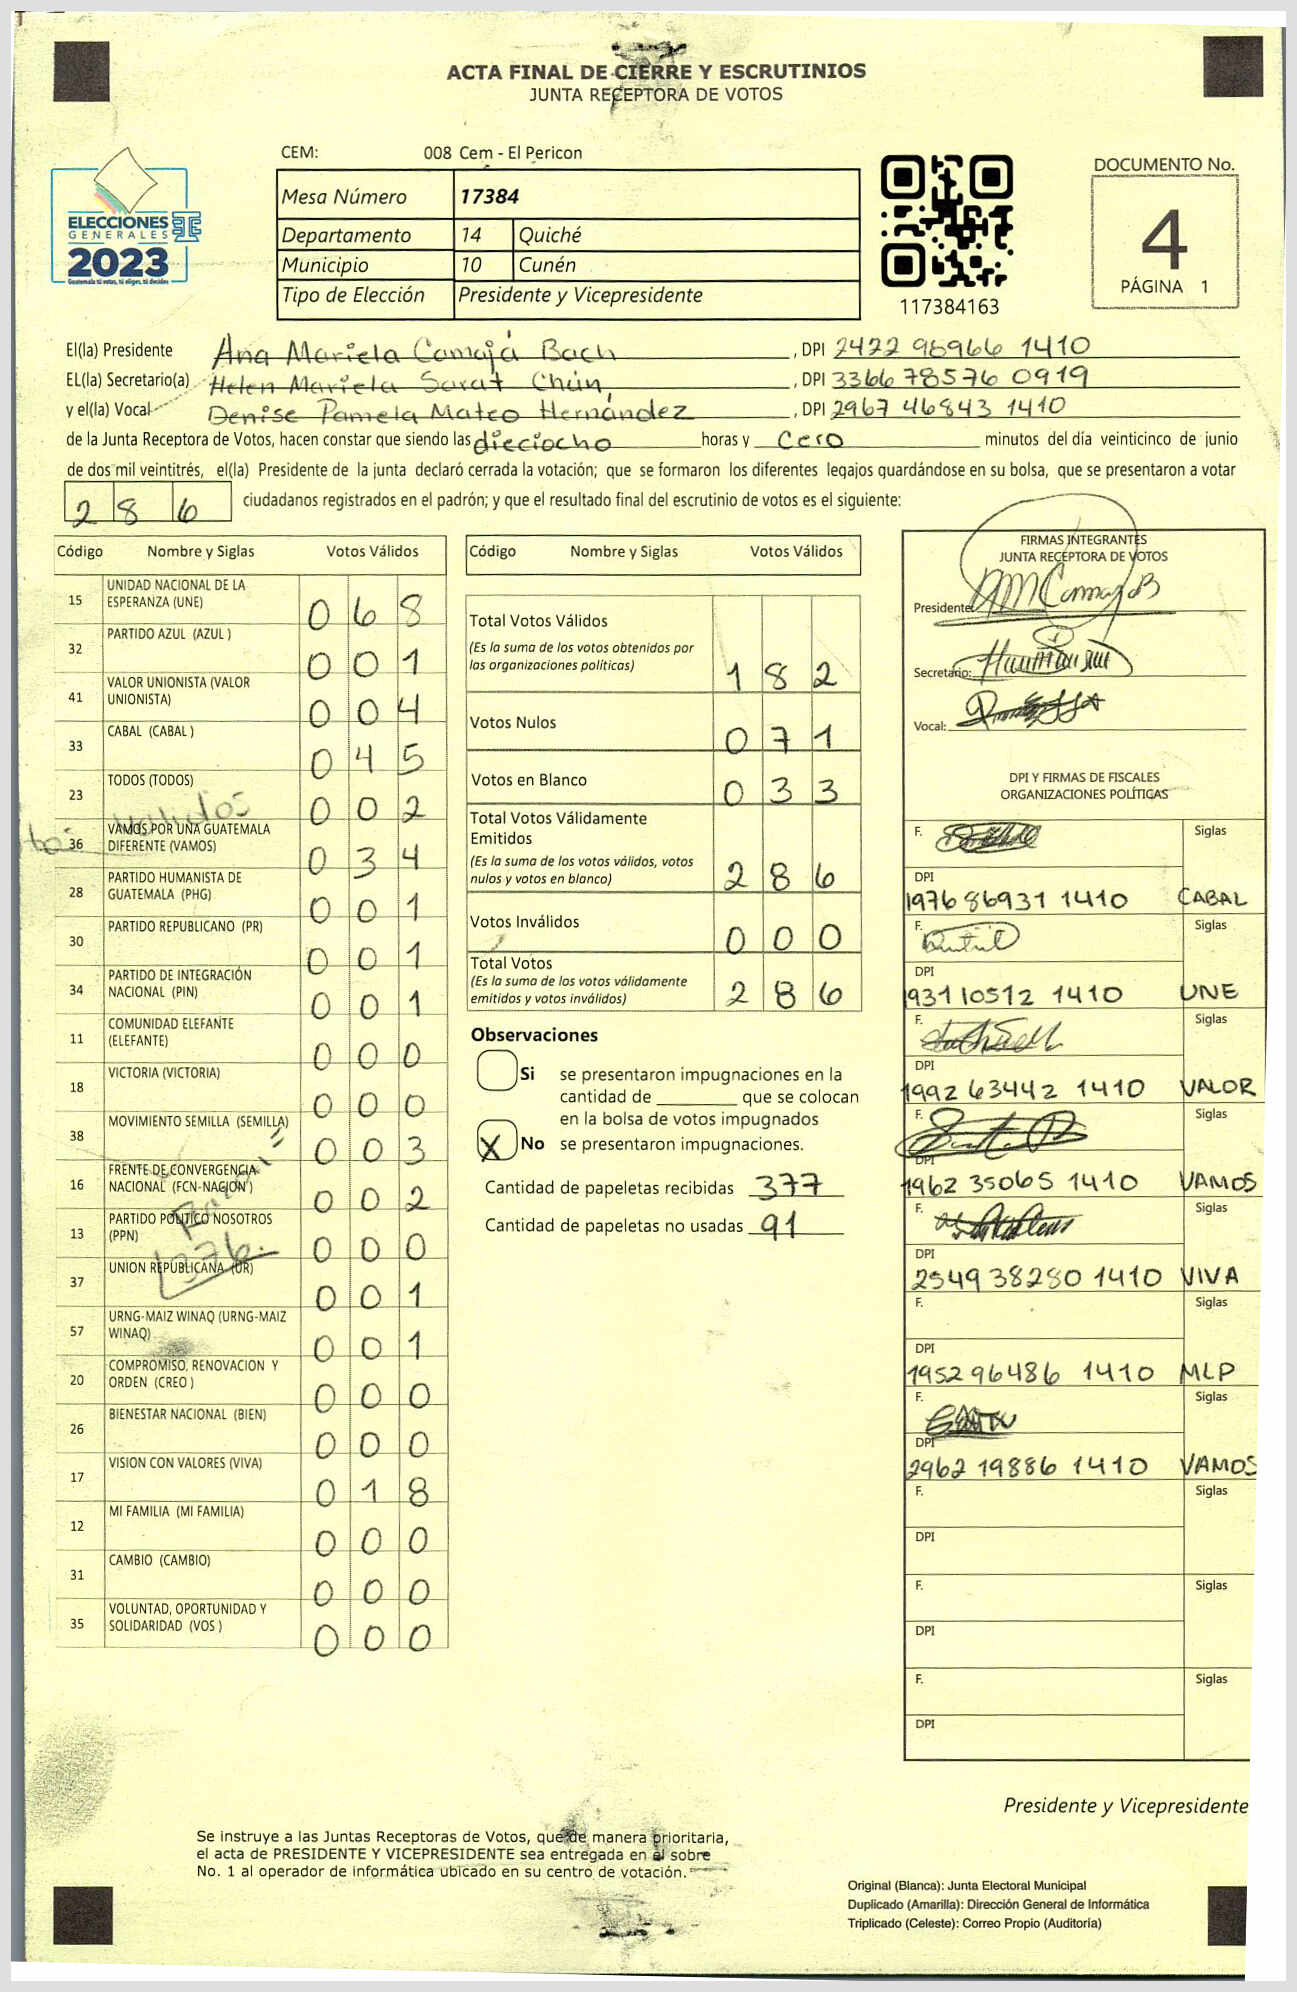 ACTA FINAL DE CIERRE Y ESCRUTINIOS
JUNTA RECEPTORA DE VOTOS
CEM: 008 Cem - El Pericon
ELECCIONES
GENERALES
2023
Guatemala tú votas, tú eliges, tú decides
Mesa Número 17384
Departamento 14 Quiché
Municipio 10 Cunén
Tipo de Elección Presidente y Vicepresidente
117384163
DOCUMENTO No.
4
PÁGINA 1
El(la) Presidente Ana Mariela Camajá Bach, DPI 2422 98966 1410
EL(la) Secretario(a) Helen Mariela Sarat Chún, DPI 3366 78576 0919
y el(la) Vocal Denise Pamela Mateo Hernández, DPI 2967 46843 1410
de la Junta Receptora de Votos, hacen constar que siendo las dieciocho horas y cero minutos del día veinticinco de junio
de dos mil veintitrés, el(la) Presidente de la junta declaró cerrada la votación; que se formaron los diferentes legajos guardándose en su bolsa, que se presentaron a votar
286 ciudadanos registrados en el padrón; y que el resultado final del escrutinio de votos es el siguiente:
Código Nombre y Siglas Votos Válidos
15 UNIDAD NACIONAL DE LA ESPERANZA (UNE) 068
32 PARTIDO AZUL (AZUL ) 001
41 VALOR UNIONISTA (VALOR UNIONISTA) 004
33 CABAL (CABAL ) 045
23 TODOS (TODOS) 002
36 VAMOS POR UNA GUATEMALA DIFERENTE (VAMOS) 034
28 PARTIDO HUMANISTA DE GUATEMALA (PHG) 001
30 PARTIDO REPUBLICANO (PR) 001
34 PARTIDO DE INTEGRACIÓN NACIONAL (PIN) 001
11 COMUNIDAD ELEFANTE (ELEFANTE) 000
18 VICTORIA (VICTORIA) 000
38 MOVIMIENTO SEMILLA (SEMILLA) 003
16 FRENTE DE CONVERGENCIA NACIONAL (FCN-NACION ) 002
13 PARTIDO POLITICO NOSOTROS (PPN) 000
37 UNION REPUBLICANA (UR) 001
57 URNG-MAIZ WINAQ (URNG-MAIZ WINAQ) 001
20 COMPROMISO, RENOVACION Y ORDEN (CREO ) 000
26 BIENESTAR NACIONAL (BIEN) 000
17 VISION CON VALORES (VIVA) 018
12 MI FAMILIA (MI FAMILIA) 000
31 CAMBIO (CAMBIO) 000
35 VOLUNTAD, OPORTUNIDAD Y SOLIDARIDAD (VOS ) 000
Código Nombre y Siglas Votos Válidos
Total Votos Válidos 182
(Es la suma de los votos obtenidos por
las organizaciones políticas)
Votos Nulos 071
Votos en Blanco 033
Total Votos Válidamente
Emitidos 286
(Es la suma de los votos válidos, votos
nulos y votos en blanco)
Votos Inválidos 000
Total Votos 286
(Es la suma de los votos válidamente
emitidos y votos inválidos)
Observaciones
Si se presentaron impugnaciones en la
cantidad de ________ que se colocan
en la bolsa de votos impugnados
X No se presentaron impugnaciones.
Cantidad de papeletas recibidas 377
Cantidad de papeletas no usadas 91
FIRMAS INTEGRANTES
JUNTA RECEPTORA DE VOTOS
Presidente:
Secretario:
Vocal:
DPI Y FIRMAS DE FISCALES
ORGANIZACIONES POLÍTICAS
F. Siglas
DPI
1976 86931 1410 CABAL
F. Siglas
DPI
1931 10512 1410 UNE
F. Siglas
DPI
1992 63442 1410 VALOR
F. Siglas
DPI
1962 35065 1410 VAMOS
F. Siglas
DPI
2549 38280 1410 VIVA
F. Siglas
DPI
1952 96486 1410 MLP
F. Siglas
DPI
2962 19886 1410 VAMOS
F. Siglas
DPI
F. Siglas
DPI
F. Siglas
DPI
Presidente y Vicepresidente
Se instruye a las Juntas Receptoras de Votos, que de manera prioritaria,
el acta de PRESIDENTE Y VICEPRESIDENTE sea entregada en el sobre
No. 1 al operador de informática ubicado en su centro de votación.
Original (Blanca): Junta Electoral Municipal
Duplicado (Amarilla): Dirección General de Informática
Triplicado (Celeste): Correo Propio (Auditoría)